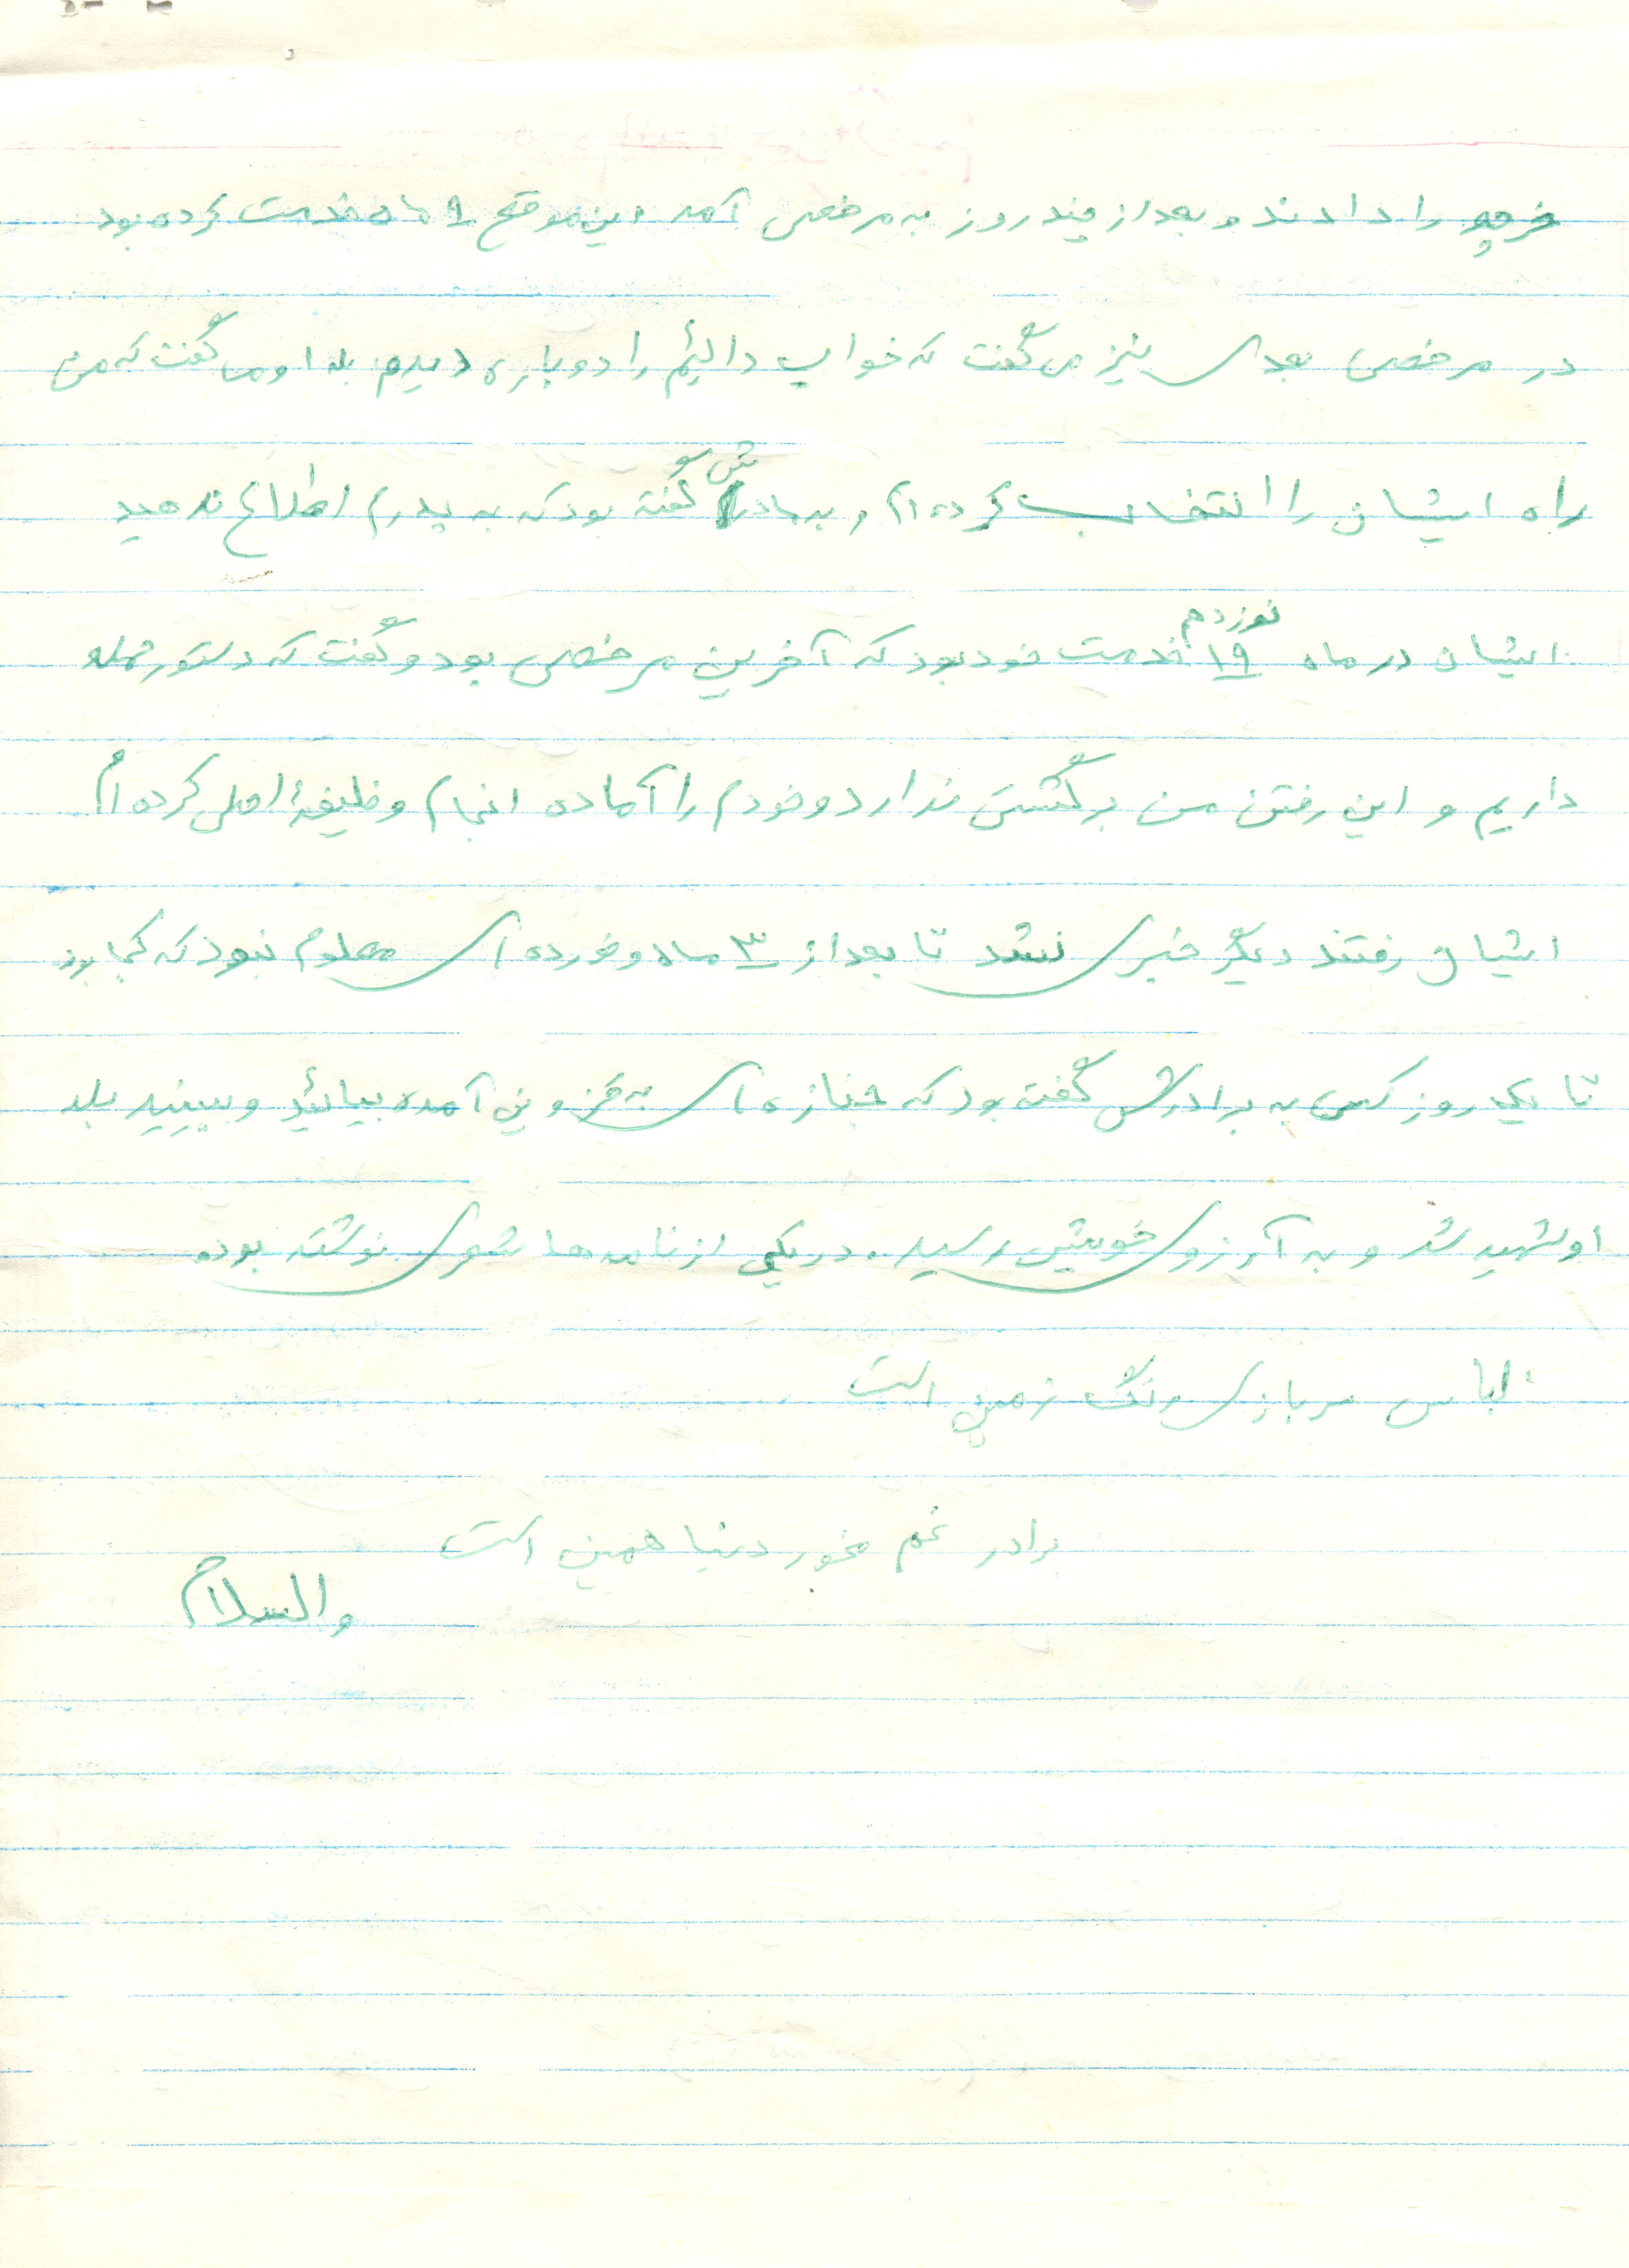 خرجی را دادند و بعد از چند روز به مرخصی آمد این موقع ۹ ماه خدمت کرده بود
در مرخصی بعدی نیز می گفت که خواب دائیم را دوباره دیدم بله او می گفت که من
راه ایشان را انتخاب کرده ام و به مادرش گفته بود که به پدرم اطلاع ندهید
ایشان در ماه ۱۹ نوزدهم خدمت خود بود که آخرین مرخصی بود و گفت که دستور حمله
داریم و این رفتن من برگشتی ندارد و خودم را آماده انجام وظیفهٔ اصلی کرده ام
ایشان رفتند دیگر خبری نشد تا بعد از ۳ ماه و خورده ای معلوم نبود که کجا بود
تا یک روز کسی به برادرش گفته بود که جنازه ای به قزوین آمده بیائید و ببینید بله
او شهید شد و به آرزوی خویش رسید. در یکی از نامه ها شعری نوشته بوده
لباس سربازی رنگ زمین است
برادر غم مخور دنیا همین است
والسلام